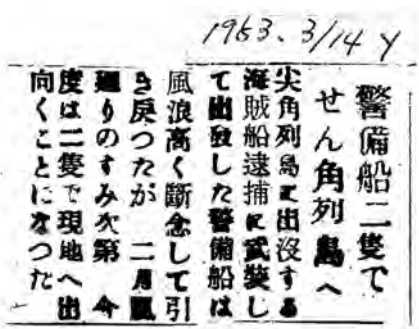 1963、3/14 Y
警備船二隻で
せん角列島へ
尖角列島に出沒する
海賊船逮捕に武裝し
て出發した警備船は
風浪高く斷念して引
き戻つたが 二月風
廻りのすみ次第 今
度は二隻で現地へ出
向くことになつた